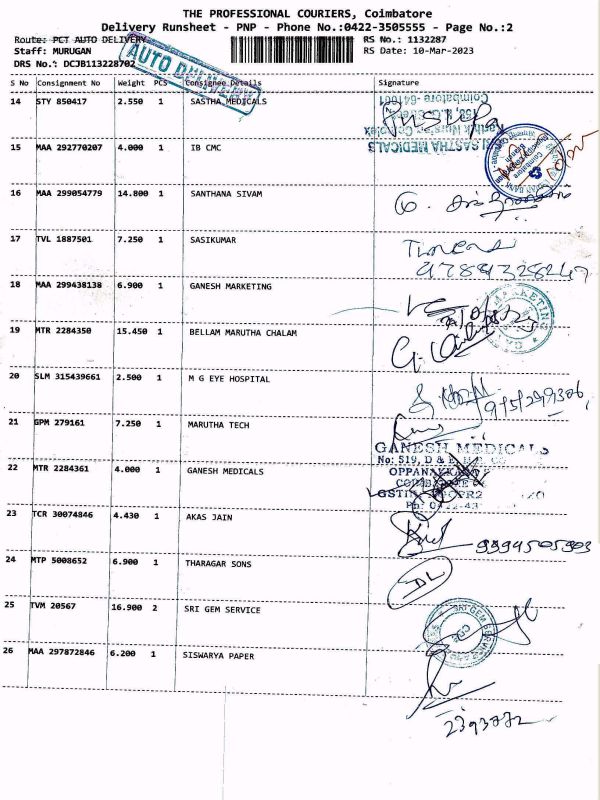 THE PROFESSIONAL COURIERS, Coimbatore
Delivery Runsheet - PNP - Phone No.:0422-3505555 - Page No.:2
Route: PCT AUTO DELIVERY RS No.: 1132287
Staff: MURUGAN RS Date: 10-Mar-2023
DRS No.: DCJB113228702
AUTO DELIVERY
S No Consignment No Weight PCS Consignee Details Signature
14 STY 850417 2.550 1 SASTHA MEDICALS
Coimbatore-641001
SASTHA MEDICALS
15 MAA 292770207 4.000 1 IB CMC
16 MAA 299054779 14.800 1 SANTHANA SIVAM
17 TVL 1887501 7.250 1 SASIKUMAR
18 MAA 299438138 6.900 1 GANESH MARKETING
19 MTR 2284350 15.450 1 BELLAM MARUTHA CHALAM
20 SLM 315439661 2.500 1 M G EYE HOSPITAL
21 GPM 279161 7.250 1 MARUTHA TECH
GANESH MEDICALS
No: 519, D &
22 MTR 2284361 4.000 1 GANESH MEDICALS
23 TCR 30074846 4.430 1 AKAS JAIN
9994505903
24 MTP 5008652 6.900 1 THARAGAR SONS
DL
25 TVM 20567 16.900 2 SRI GEM SERVICE
SRI GEM SERVICE
26 MAA 297872846 6.200 1 SISWARYA PAPER
2393772